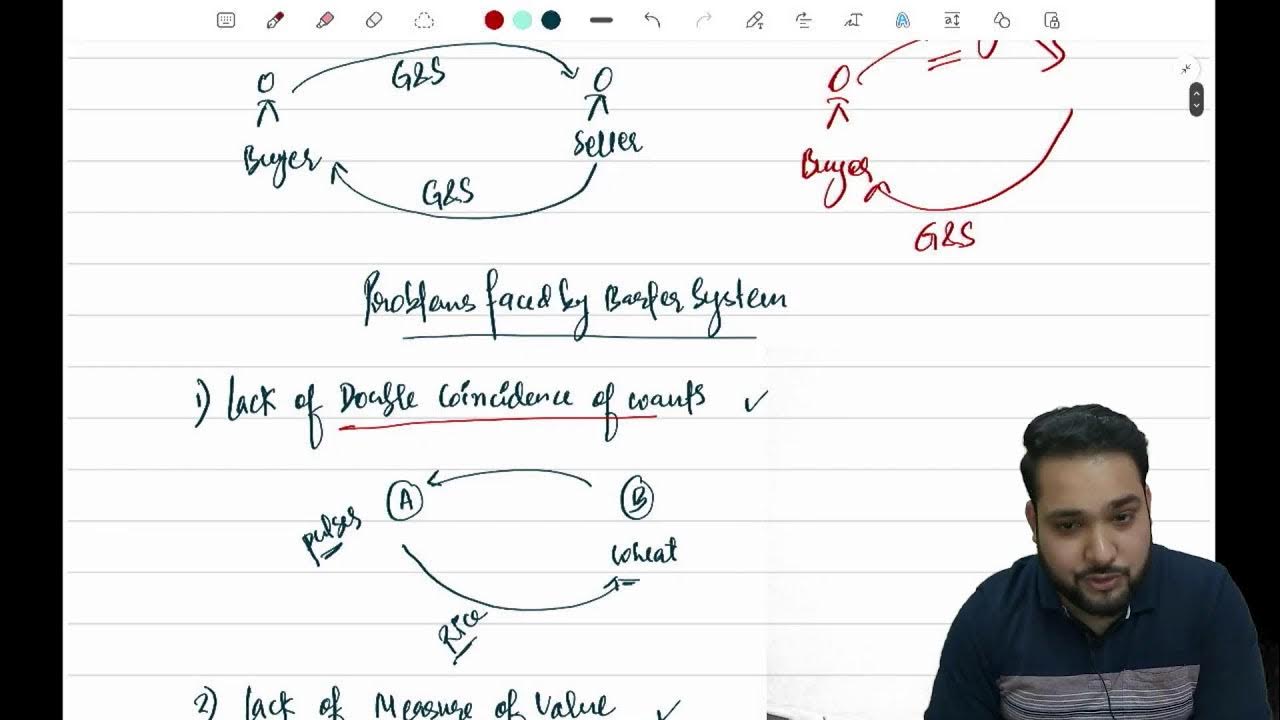 G&S
Buyer
Seller
G&S
Buyer
G&S
Problems faced by Barter System
1) Lack of Double Coincidence of wants
A
B
pulses
wheat
Rice
2) Lack of Measure of Value